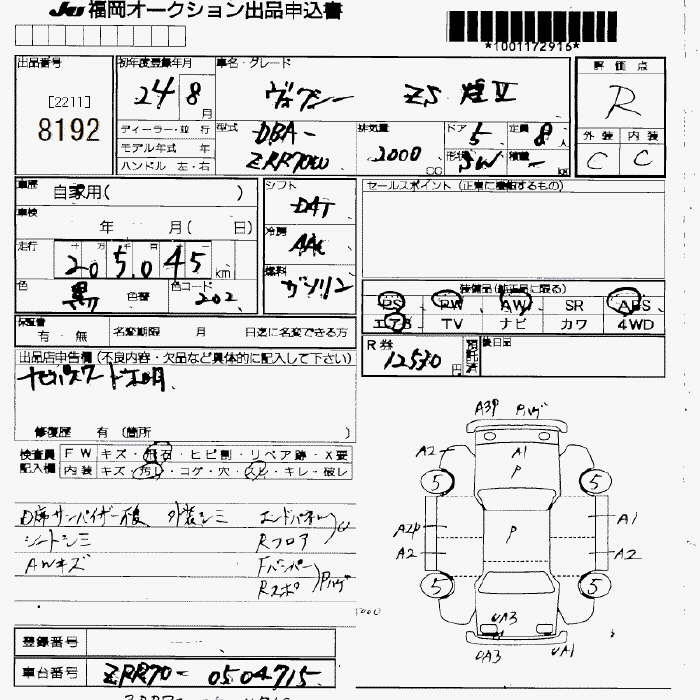 JU 福岡オークション出品申込書
*1001172916*
出品番号 初年度登録年月 車名・グレード 評価点
[2211] 8192
24 8 月 ヴォクシー ZS 煌Ⅱ R
ディーラー・並行 型式 DBA- 排気量 ドア 5 定員 8 人 外装 内装
モデル年式 年 ZRR70W 2000 cc 形状 SW 積量 - kg C C
ハンドル 左・右
車歴 自家用( ) シフト DAT セールスポイント (正東に機能するもの)
車検 年 月( 日) 冷房 AAC
走行 205,045 km 燃料 ガソリン
色 黒 色替 色コード 202 装備品(純正品に限る)
PS PW AW SR ABS
エアB TV ナビ カワ 4WD
保証書 有・無 名変期限 月 日迄に名変できる方
R券 12530 円 預託済 後日品
出品店申告欄 (不良内容・欠品など具体的に記入して下さい)
ナビパスワード不明
修復歴 有 (箇所 )
検査員 FW キズ・飛石・ヒビ割・リペア跡・X要
記入欄 内装 キズ・汚レ・コゲ・穴・スレ・キレ・破レ
D席サンバイザー不良 外装シミ エンドパネル
シートシミ Rフロア
AWキズ Fバンパー
Rスポ
A3P
A2 A1
P
5 5
A2P P A1
A2 A2
5 5
UA3
UA3 UA1
登録番号
車台番号 ZRR70-0504715